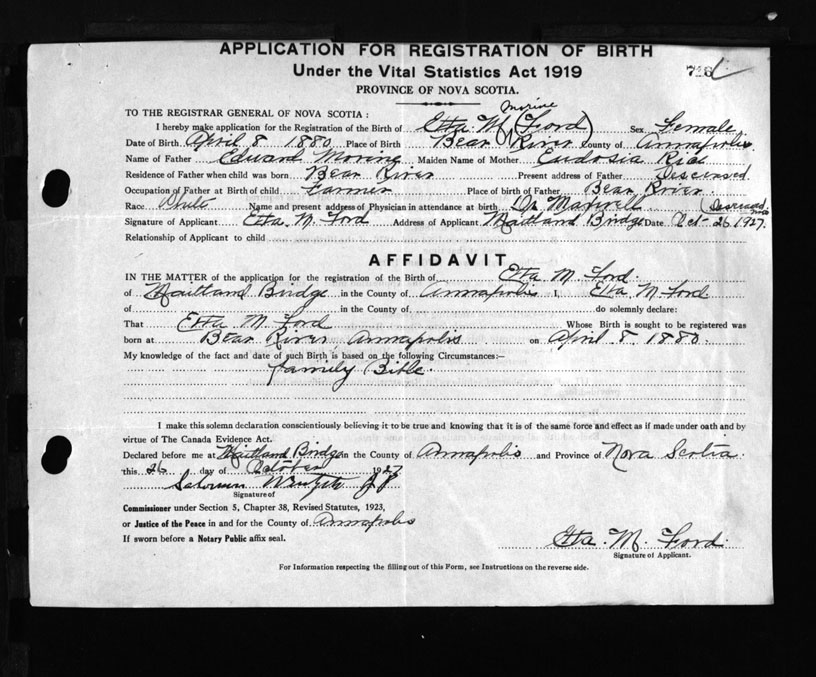 APPLICATION FOR REGISTRATION OF BIRTH
Under the Vital Statistics Act 1919
PROVINCE OF NOVA SCOTIA.
TO THE REGISTRAR GENERAL OF NOVA SCOTIA :
Morine
I hereby make application for the Registration of the Birth of Etta M (Ford) Sex Female
Date of Birth April 8 1880 Place of Birth Bear River County of Annapolis
Name of Father Edward Morine Maiden Name of Mother Eudosia Rice
Residence of Father when child was born Bear River Present address of Father Deceased
Occupation of Father at Birth of child Farmer Place of birth of Father Bear River
Race White Name and present address of Physician in attendance at birth Dr Maxwell
Signature of Applicant Etta M. Ford Address of Applicant Maitland Bridge Date Oct 26 1927.
Relationship of Applicant to child
AFFIDAVIT
IN THE MATTER of the application for the registration of the Birth of Etta M Ford.
of Maitland Bridge in the County of Annapolis I, Etta M Ford
of in the County of, do solemnly declare:
That Etta M Ford Whose Birth is sought to be registered was
born at Bear River Annapolis on April 8 1880.
My knowledge of the fact and date of such Birth is based on the following Circumstances:—
family Bible.
I make this solemn declaration conscientiously believing it to be true and knowing that it is of the same force and effect as if made under oath and by
virtue of The Canada Evidence Act.
Declared before me at Maitland Bridge in the County of Annapolis and Province of Nova Scotia.
this 26 day of October 1927
J P
Signature of
Commissioner under Section 5, Chapter 38, Revised Statutes, 1923,
or Justice of the Peace in and for the County of Annapolis
If sworn before a Notary Public affix seal.
Etta. M. Ford.
Signature of Applicant.
For Information respecting the filling out of this Form, see Instructions on the reverse side.